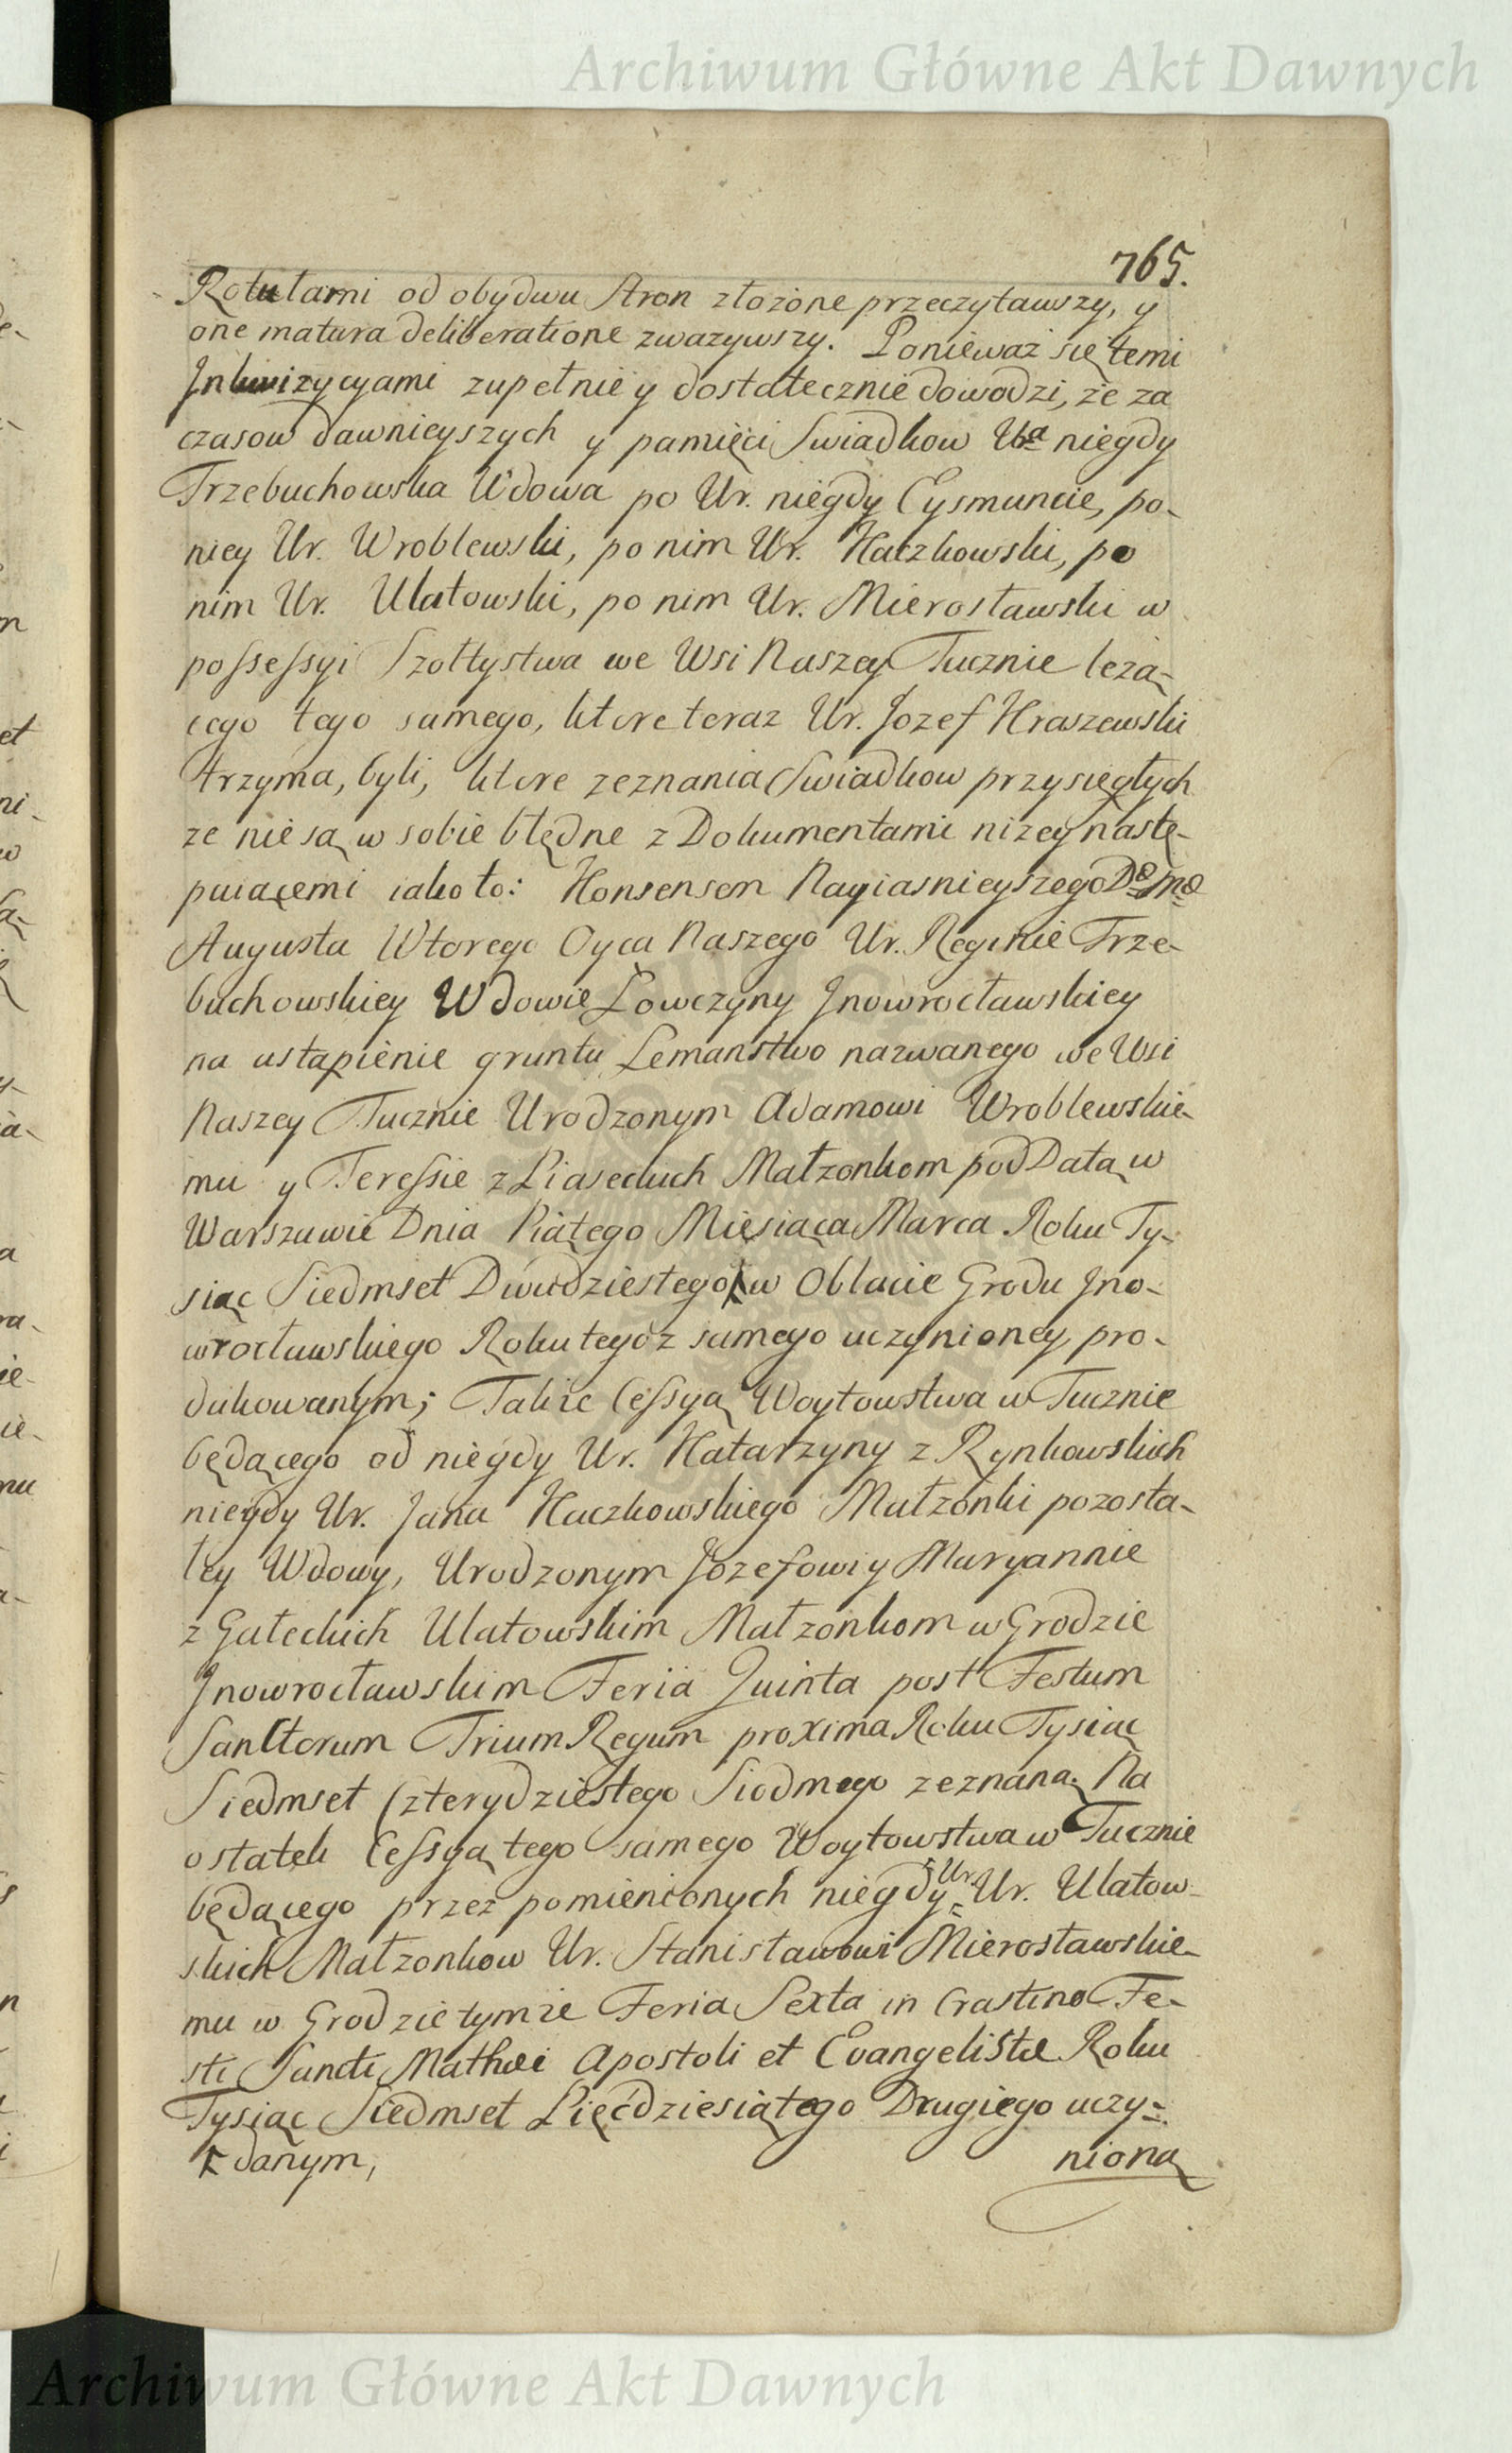 Archiwum Główne Akt Dawnych
765.
Rotułami od obydwu Stron złożone przeczytawszy, y
one matura deliberatione zwazywszy. Ponieważ się temi
Inkwizycyami zupełnie y dostatecznie dowodzi, że za
czasow dawnieyszych y pamięci Swiadkow Ur̲a̲ niegdy
Trzebuchowska Wdowa po Ur. niegdy Cysmuncie, po-
niey Ur. Wroblewski, po nim Ur. Kaczkowski, po
nim Ur. Ulatowski, po nim Ur. Mierosławski w
possessyi Szołtystwa we Wsi Naszey Tucznie leżą-
cego tego samego, ktore teraz Ur. Jozef Kraszewski
trzyma, byli, ktore zeznania Swiadkow przysięgłych
że nie są w sobie błędne z Dokumentami niżey nastę-
puiącemi iako to: Konsensem Nayiasnieyszego
Augusta Wtorego Oyca Naszego Ur. Reginie Trze-
buchowskiey Wdowie Łowczyny Jnowrocławskiey
na ustąpienie gruntu Lemanstwo nazwanego we Wsi
Naszey Tucznie Urodzonym Adamowi Wroblewskie-
mu y Teressie z Piaseckich Małżonkom pod Datą w
Warszawie Dnia Piątego Miesiąca Marca Roku Ty-
siąc Siedmset Dwudziestego ꝉ w Oblacie Grodu Jno-
wrocławskiego Roku tegoż samego uczynioney pro-
dukowanym; Także Cessyą Woytowstwa w Tucznie
będącego od niegdy Ur. Katarzyny z Rynkowskich
niegdy Ur. Jana Kaczkowskiego Małżonki pozosta-
łey Wdowy, Urodzonym Jozefowi y Maryannie
z Gałeckich Ulatowskim Małżonkom w Grodzie
Jnowrocławskim Feria Quinta post Festum
Sanctorum Trium Regum proxima Roku Tysiąc
Siedmset Czterydziestego Siodmego zeznaną. Na
ostatek Cessyą tego samego Woytowstwa w Tucznie
będącego przez pomienionych niegdy Ur. Ur. Ulatow-
skich Małżonkow Ur. Stanisławowi Mierosławskie-
mu w Grodzie tymże Feria Sexta in Crastino Fe-
sti Sancti Mathæi Apostoli et Evangelistæ Roku
Tysiąc Siedmset Pięćdziesiątego Drugiego uczy-
ꝉ danym, nioną
Archiwum Główne Akt Dawnych